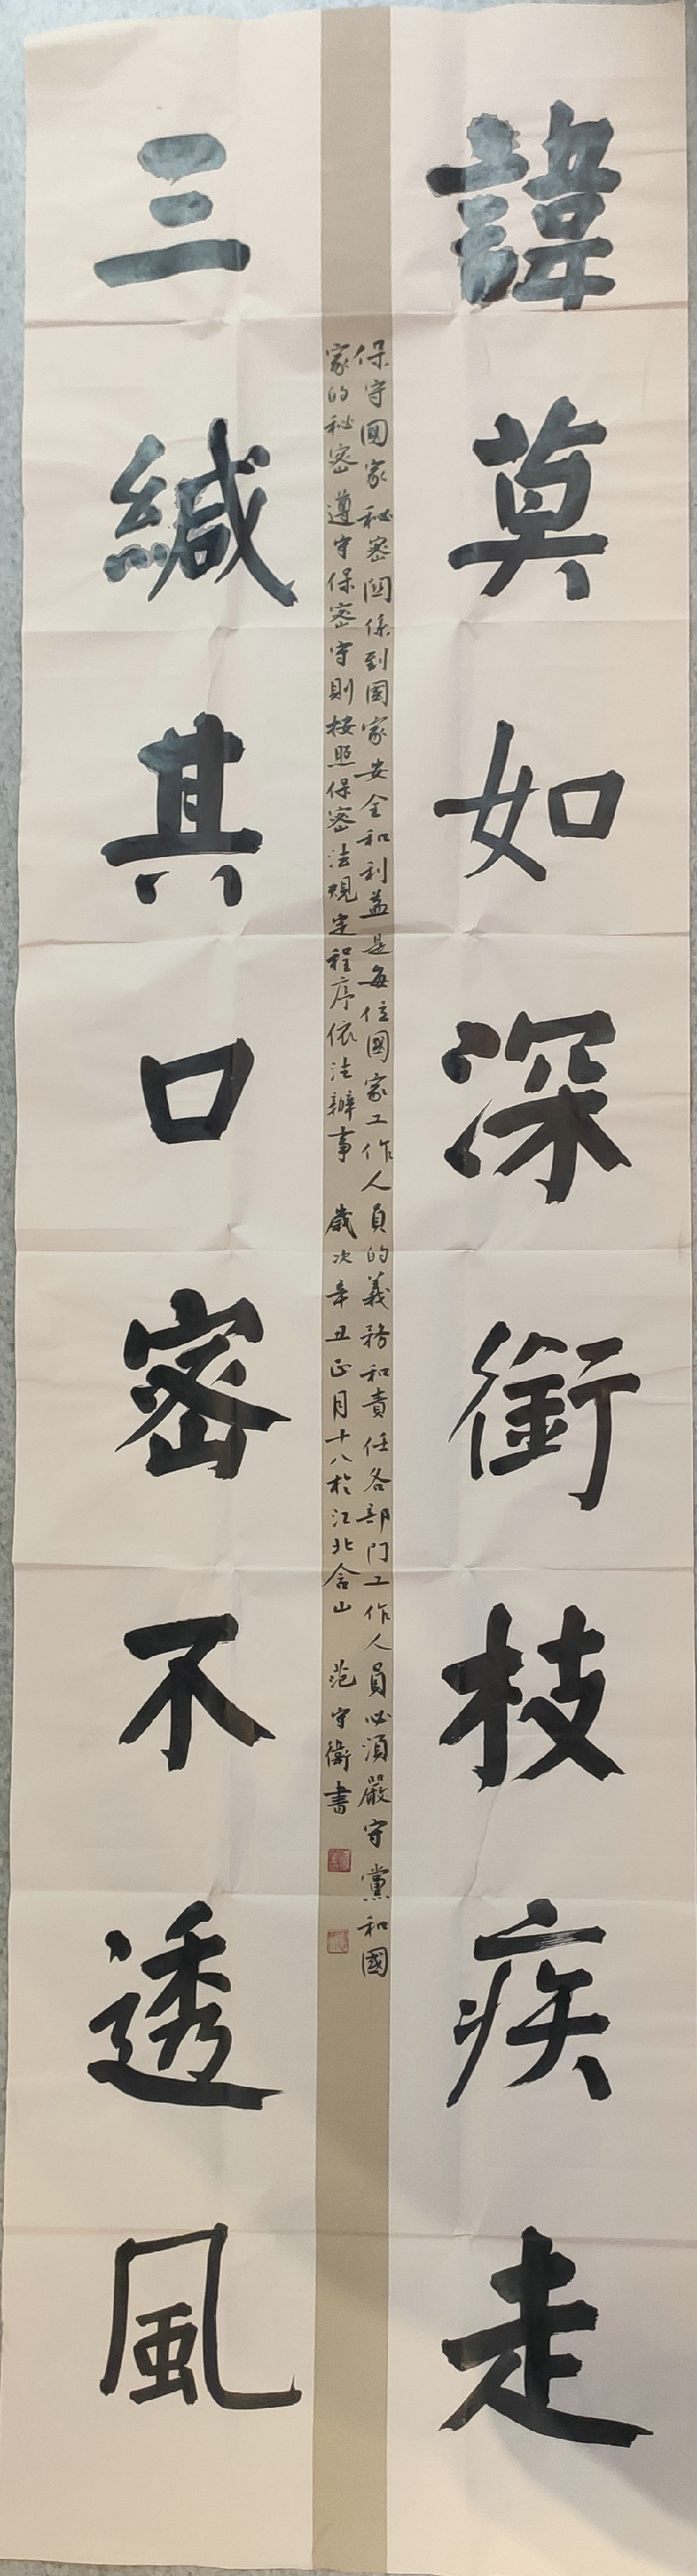 諱莫如深銜枝疾走
保守國家秘密関係到國家安全和利益是每位國家工作人員的義務和責任各部门工作人員必須嚴守黨和國
家的秘密遵守保密守則按照保密法規定程序依法辦事 歲次辛丑正月十八於江北含山 范守衛書
三緘其口密不透風